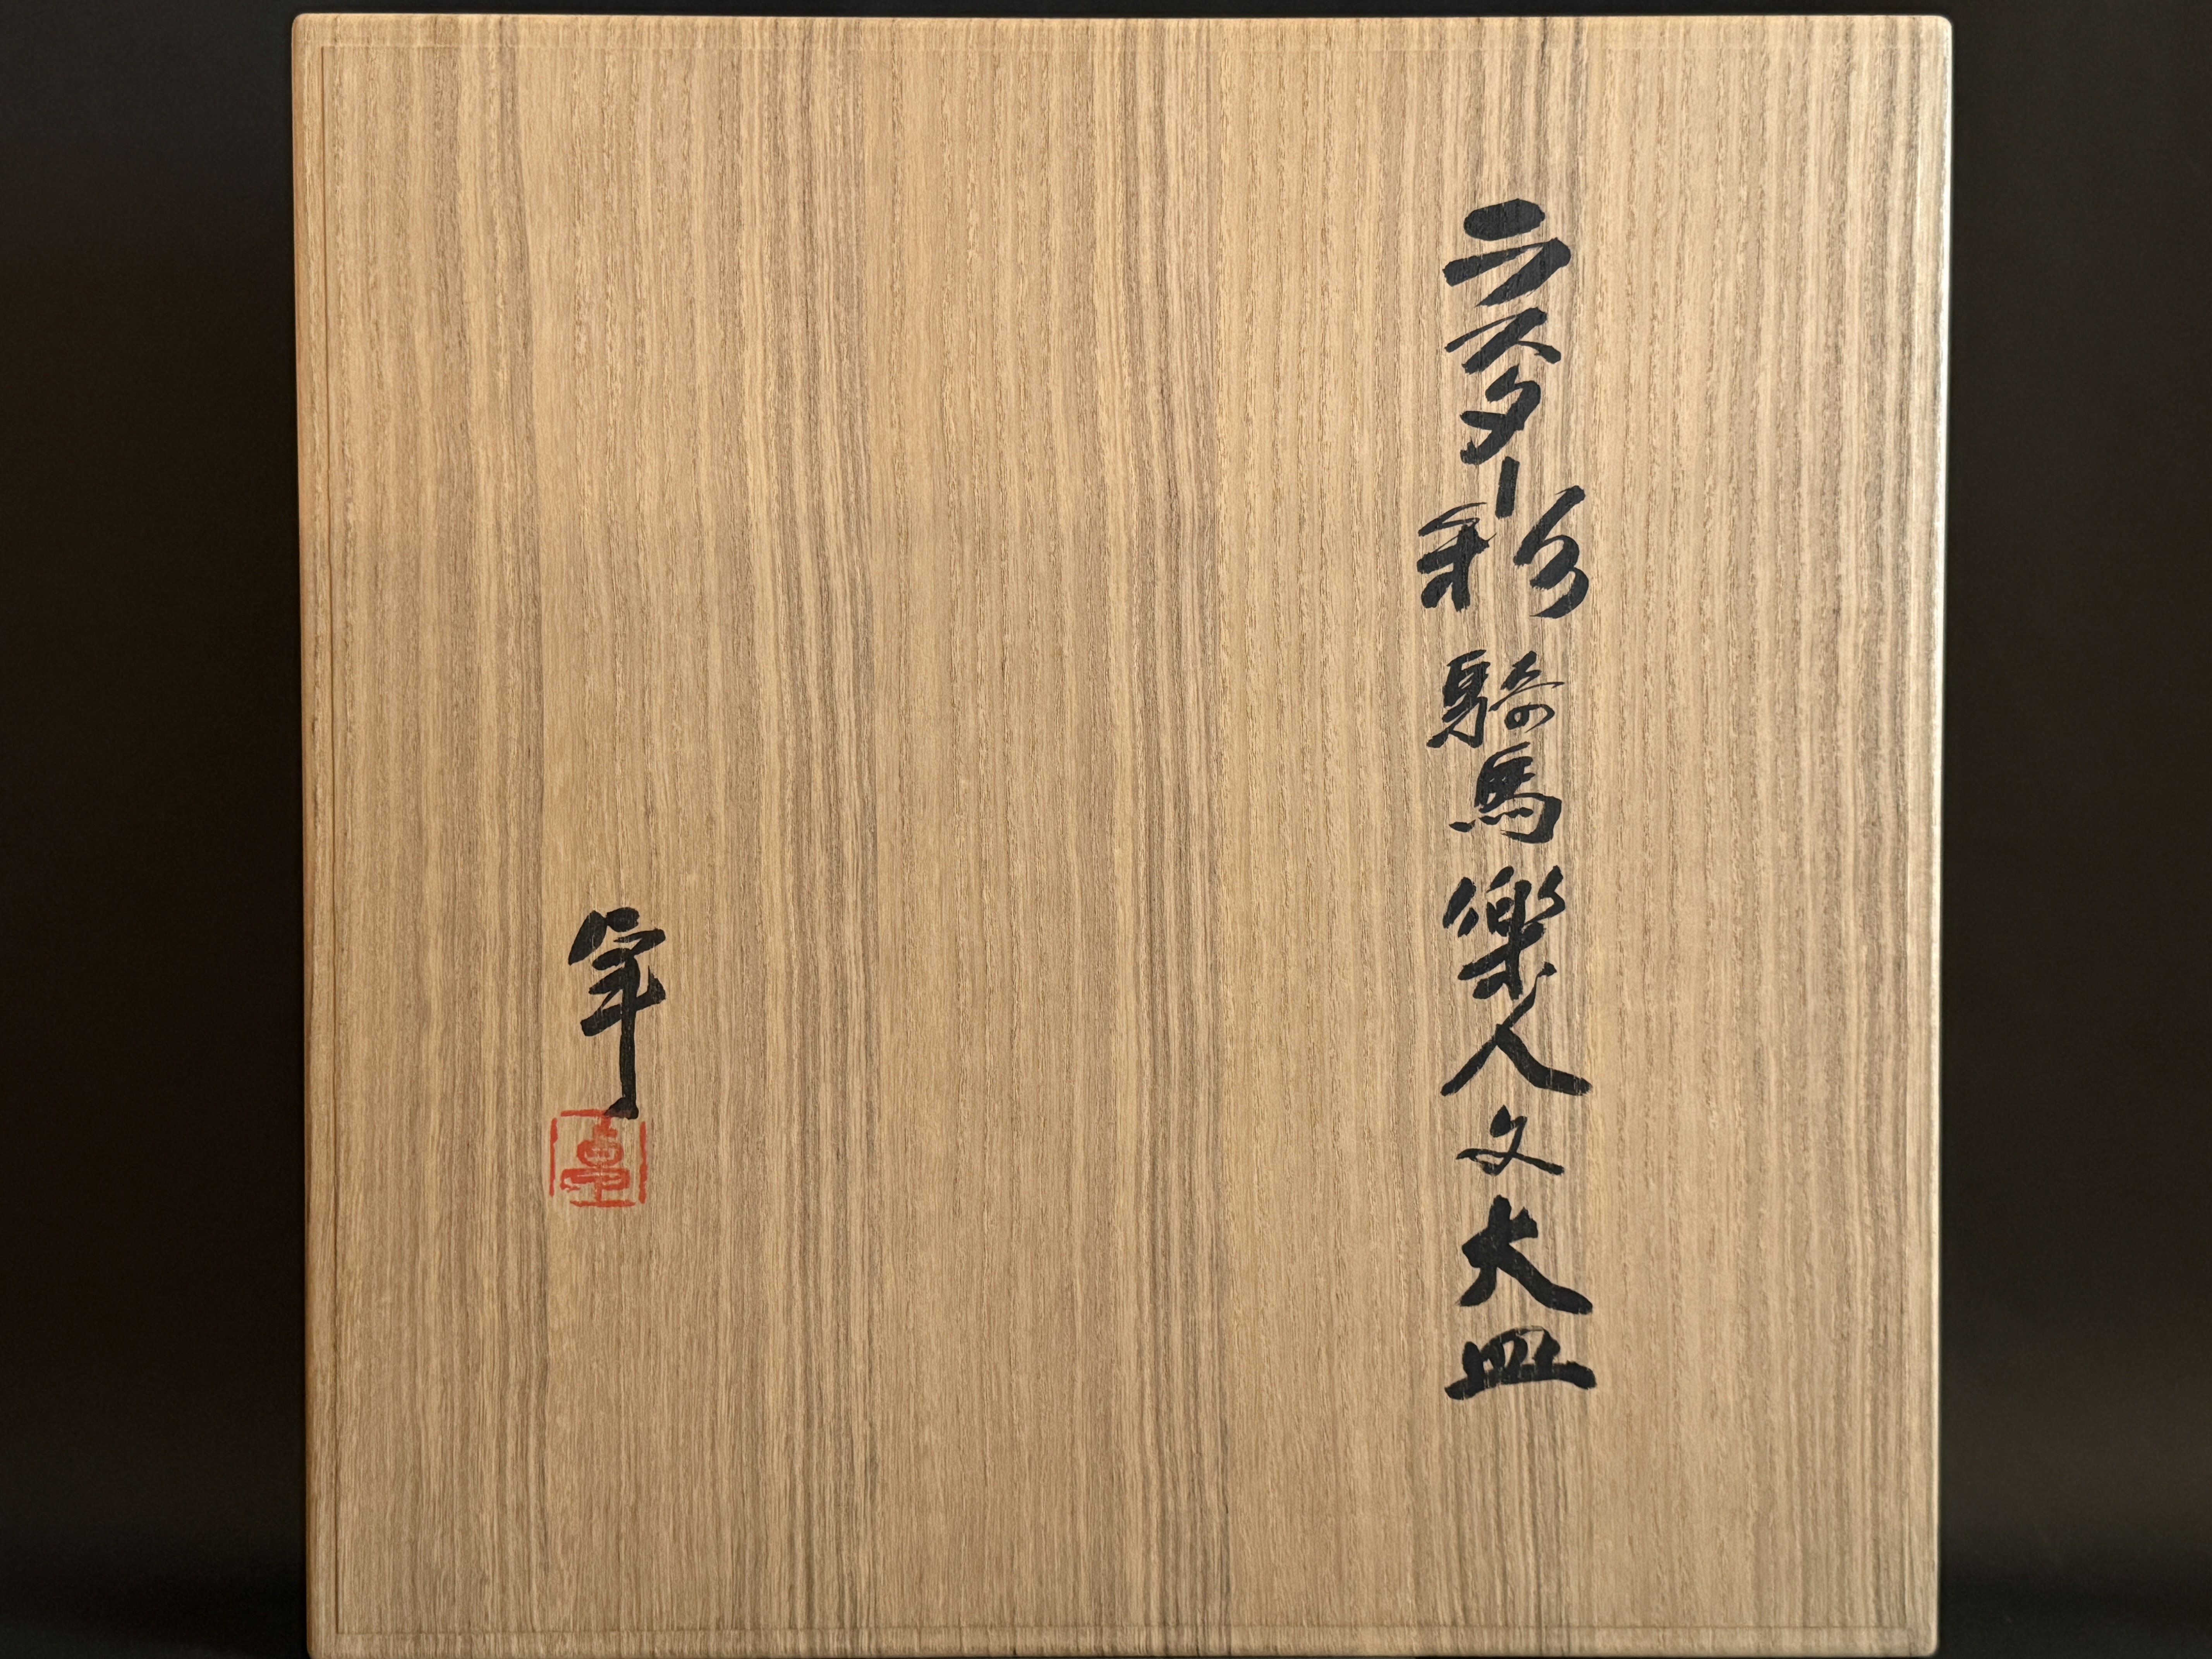 ラスター彩 騎馬樂人文大皿